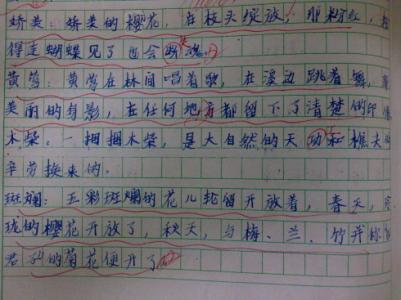 娇美：娇美的樱花，在枝头绽放，那粉红，
得连蝴蝶见了也会断魂。
黄莺：黄莺在林间唱着歌，在漫边跳着舞，
美丽的身影，在任何地方都留下了清楚的印
木柴：一捆捆木柴，是大自然的天功和樵夫
辛劳换来的。
斑斓：五彩斑斓的花儿轮留开放着，春天，
珑的樱花开放了，秋天，与梅、兰、竹并称
君子的菊花便开了